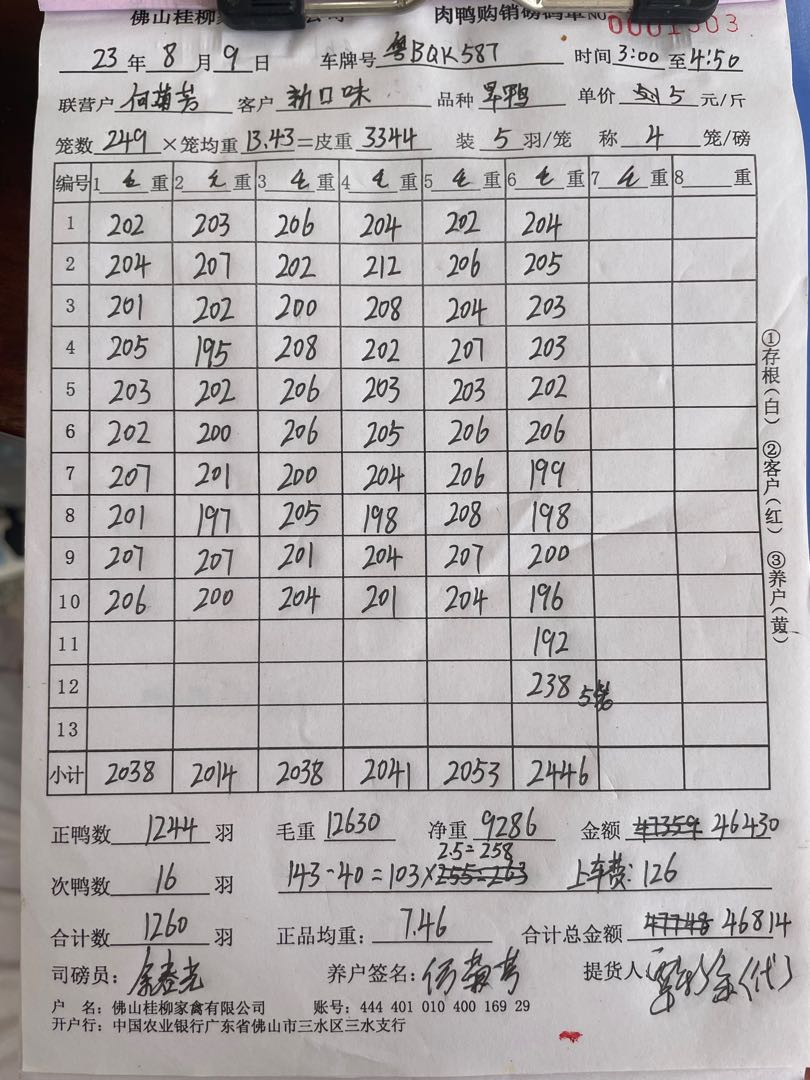 佛山桂柳家禽有限公司 肉鸭购销磅码单 NO 0001303
23 年 8 月 9 日 车牌号 粤BQK587 时间 3:00 至 4:50
联营户 何菊芳 客户 新口味 品种 旱鸭 单价 5 元/斤
笼数 249 ×笼均重 13.43 =皮重 3344 装 5 羽/笼 称 4 笼/磅
编号 1 毛 重 2 毛 重 3 毛 重 4 毛 重 5 毛 重 6 毛 重 7 毛 重 8 重
1 202 203 206 204 202 204
2 204 207 202 212 206 205
3 201 202 200 208 204 203
4 205 195 208 202 207 203
5 203 202 206 203 203 202
6 202 200 206 205 206 206
7 207 201 200 204 206 199
8 201 197 205 198 208 198
9 207 207 201 204 207 200
10 206 200 204 201 204 196
11 192
12 238 5笼
13
小计 2038 2014 2038 2041 2053 2446
正鸭数 1244 羽 毛重 12630 净重 9286 金额 47359 46430
2.5=258
次鸭数 16 羽 143-40=103×255=263 上车费:126
合计数 1260 羽 正品均重: 7.46 合计总金额 47748 46814
司磅员: 养户签名: 何菊芳 提货人: (代)
户 名: 佛山桂柳家禽有限公司 账号: 444 401 010 400 169 29
开户行: 中国农业银行广东省佛山市三水区三水支行
①存根(白) ②客户(红) ③养户(黄)